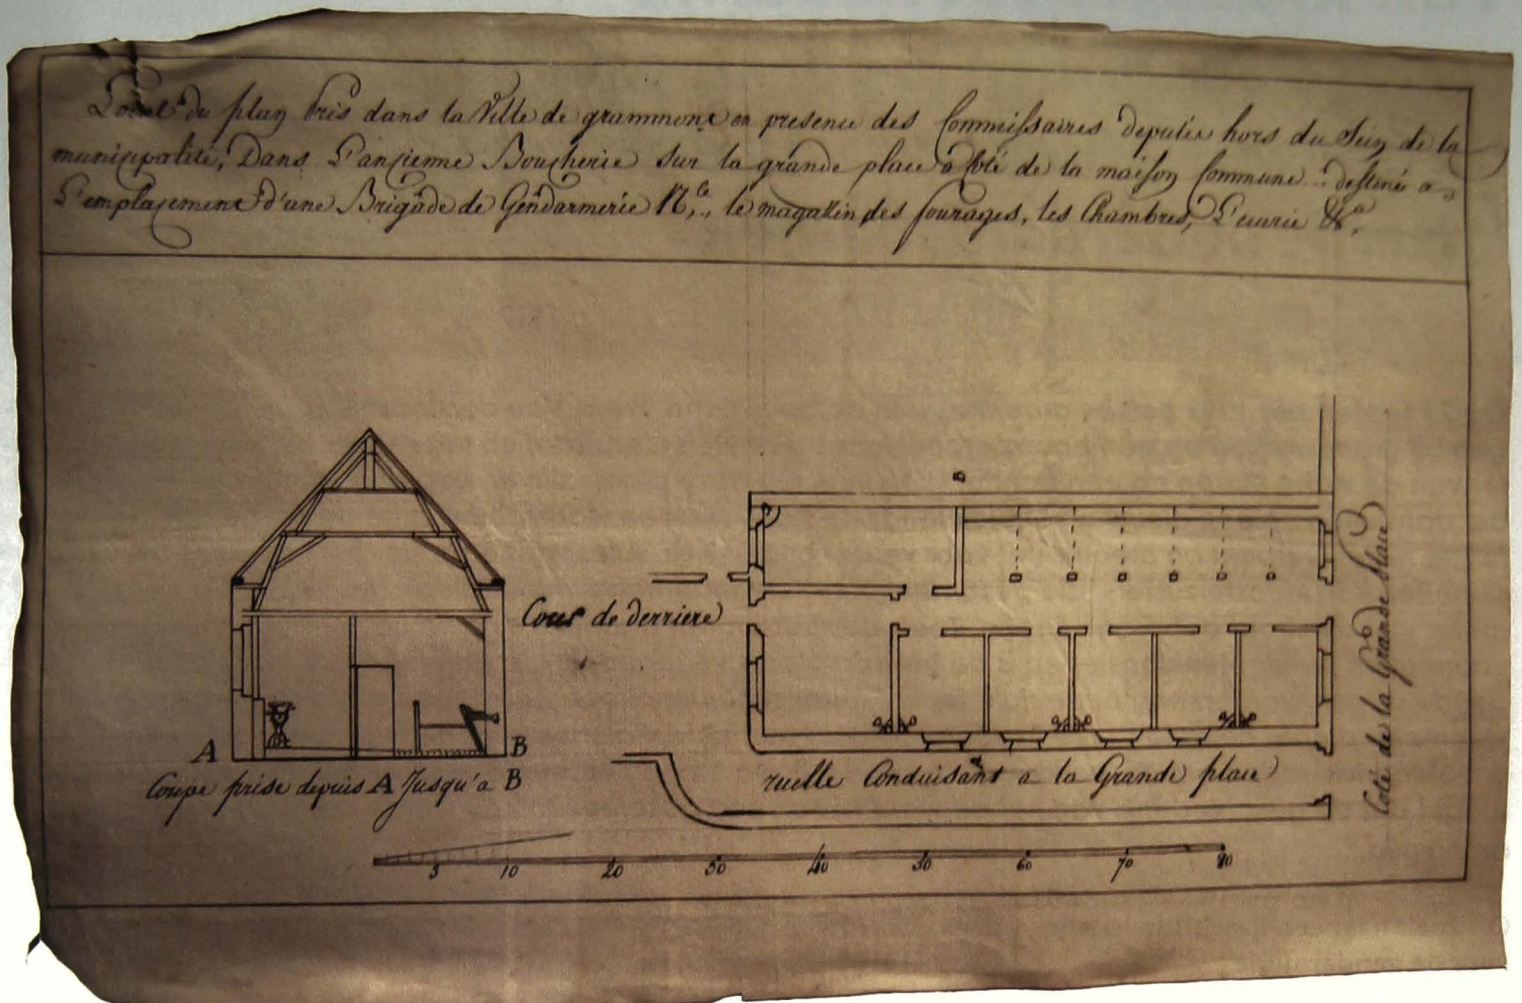 du plan pris dans la Ville de grammont en presence des Commissaires deputés hors du Sein de la
municipalité, Dans L'ancienne Boucherie sur la grande place a Coté de la maison Commune .. destiné a
L'emplacement d'une Brigade de Gendarmerie N.le, le magazin des fourages, les Chambres, L'ecurie &a.
B
Cour de derriere
Coté de la Grande place
A
B
Coupe prise depuis A Jusqu'a B
ruelle Conduisant a la Grande place
5 10 20 30 40 50 60 70 80